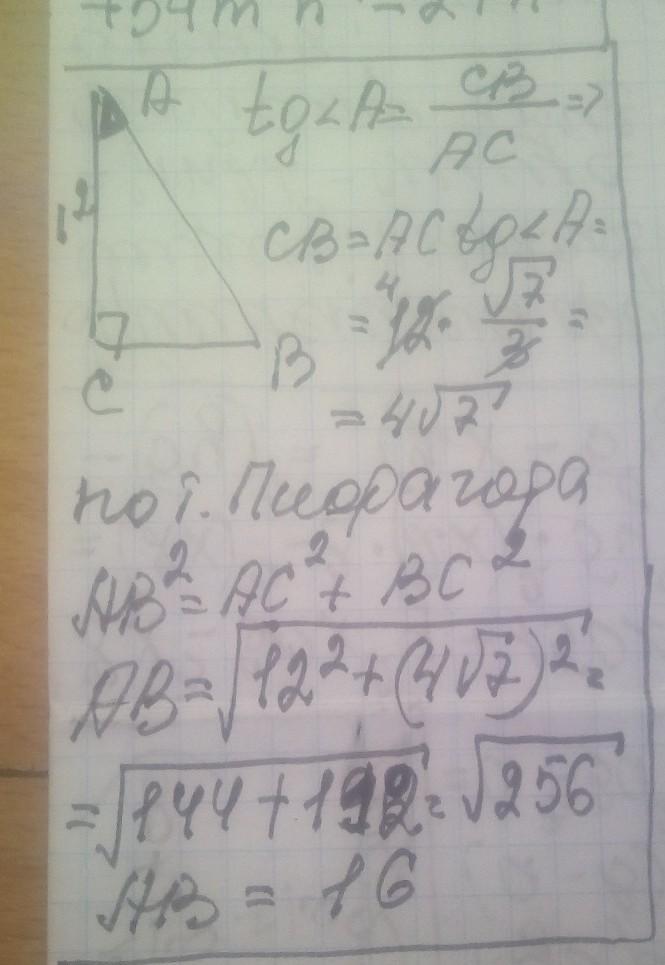 +54m n - 27n
A
tg<A= CB/AC =>
12
CB=AC tg<A=
= 4 12 · √7/3 =
C
B
= 4√7
по т. Пифрагора
AB²=AC²+ BC²
AB=√12²+(4√7)²=
=√144+112=√256
AB = 16